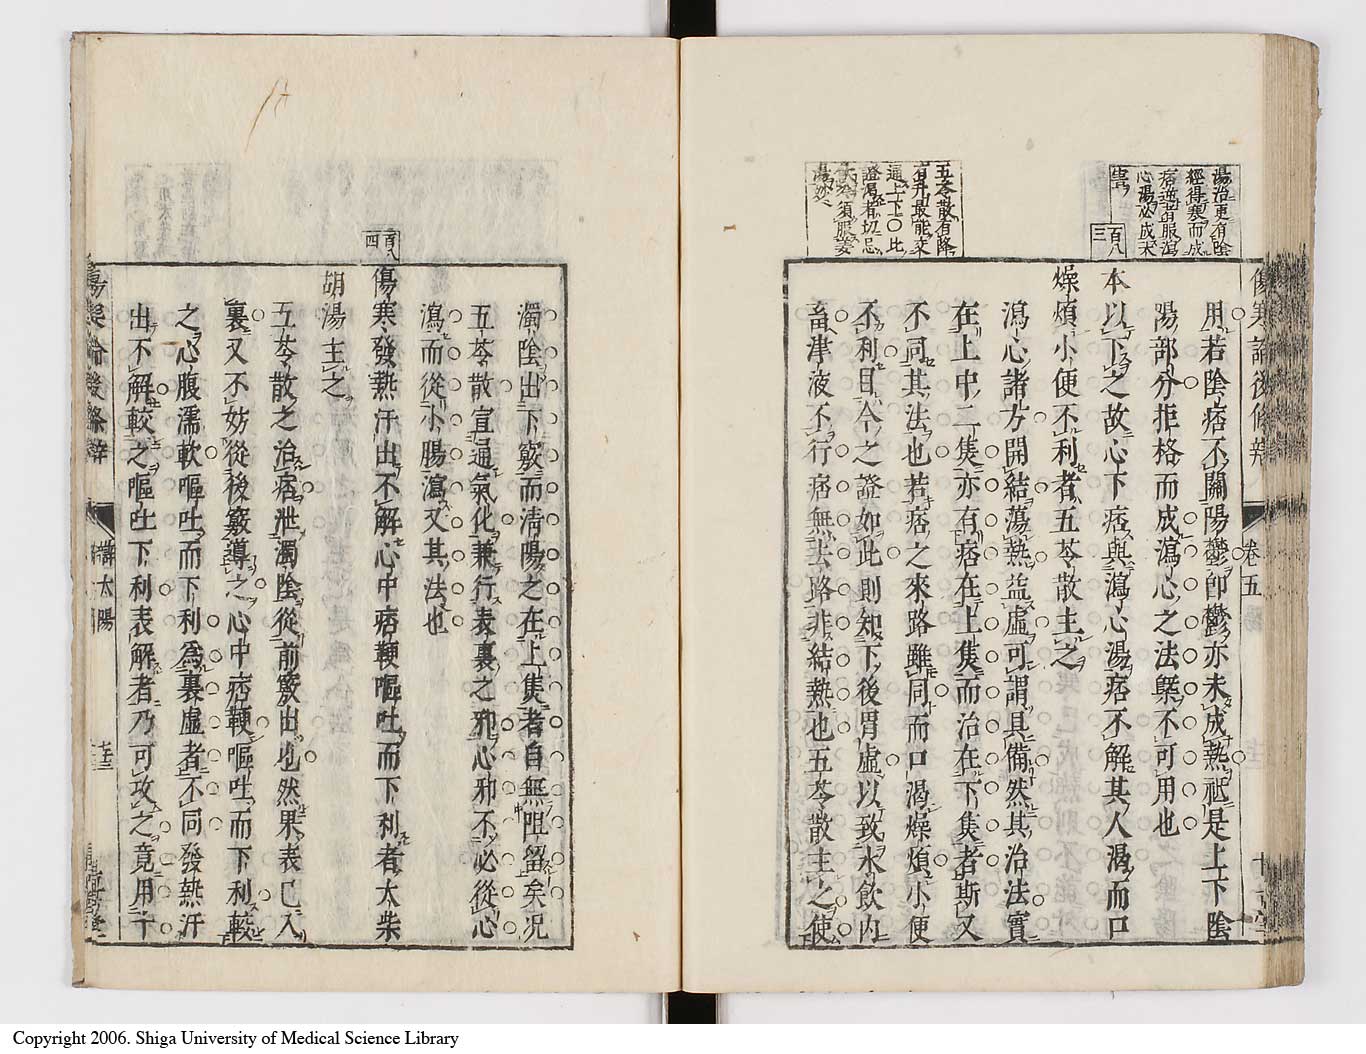 湯治更有陰
經得寒而成
痞證者服瀉
心湯必成禾
百八
三
五苓散有降
有升最能交
通上下〇此
證渴有切忌
須服姜
湯妙
傷寒論後條辨
卷五
用若陰痞不關陽鬱即鬱亦未成熱秪是上下陰
陽部分拒格而成瀉心之法槩不可用也
本以下之故心下痞與瀉心湯痞不解其人渴而口
燥煩小便不利者五苓散主之
瀉心諸方開結蕩熱益虛可謂具備然其治法實
在上中二焦亦有痞在上焦而治在下焦者斯又
不同其法也若痞之來路雖同而口渴燥煩小便
不利目今之證如此則知下後胃虛以致水飲內
畜津液不行痞無去路非結熱也五苓散主之使
濁陰出下竅而清陽之在上焦者自無阻留矣况
五苓散宣通氣化兼行表裏之邪心邪不必從心
瀉而從小腸瀉又其法也
百八
四
傷寒發熱汗出不解心中痞鞕嘔吐而下利者太柴
胡湯主之
五苓散之治痞泄濁陰從前竅出也然果表已入
裏又不妨從後竅導之心中痞鞕嘔吐而下利較
之心腹濡軟嘔吐而下利為裏虛者不同發熱汗
出不解較之嘔吐下利表解者乃可攻之竟用十
辨太陽
Copyright 2006. Shiga University of Medical Science Library